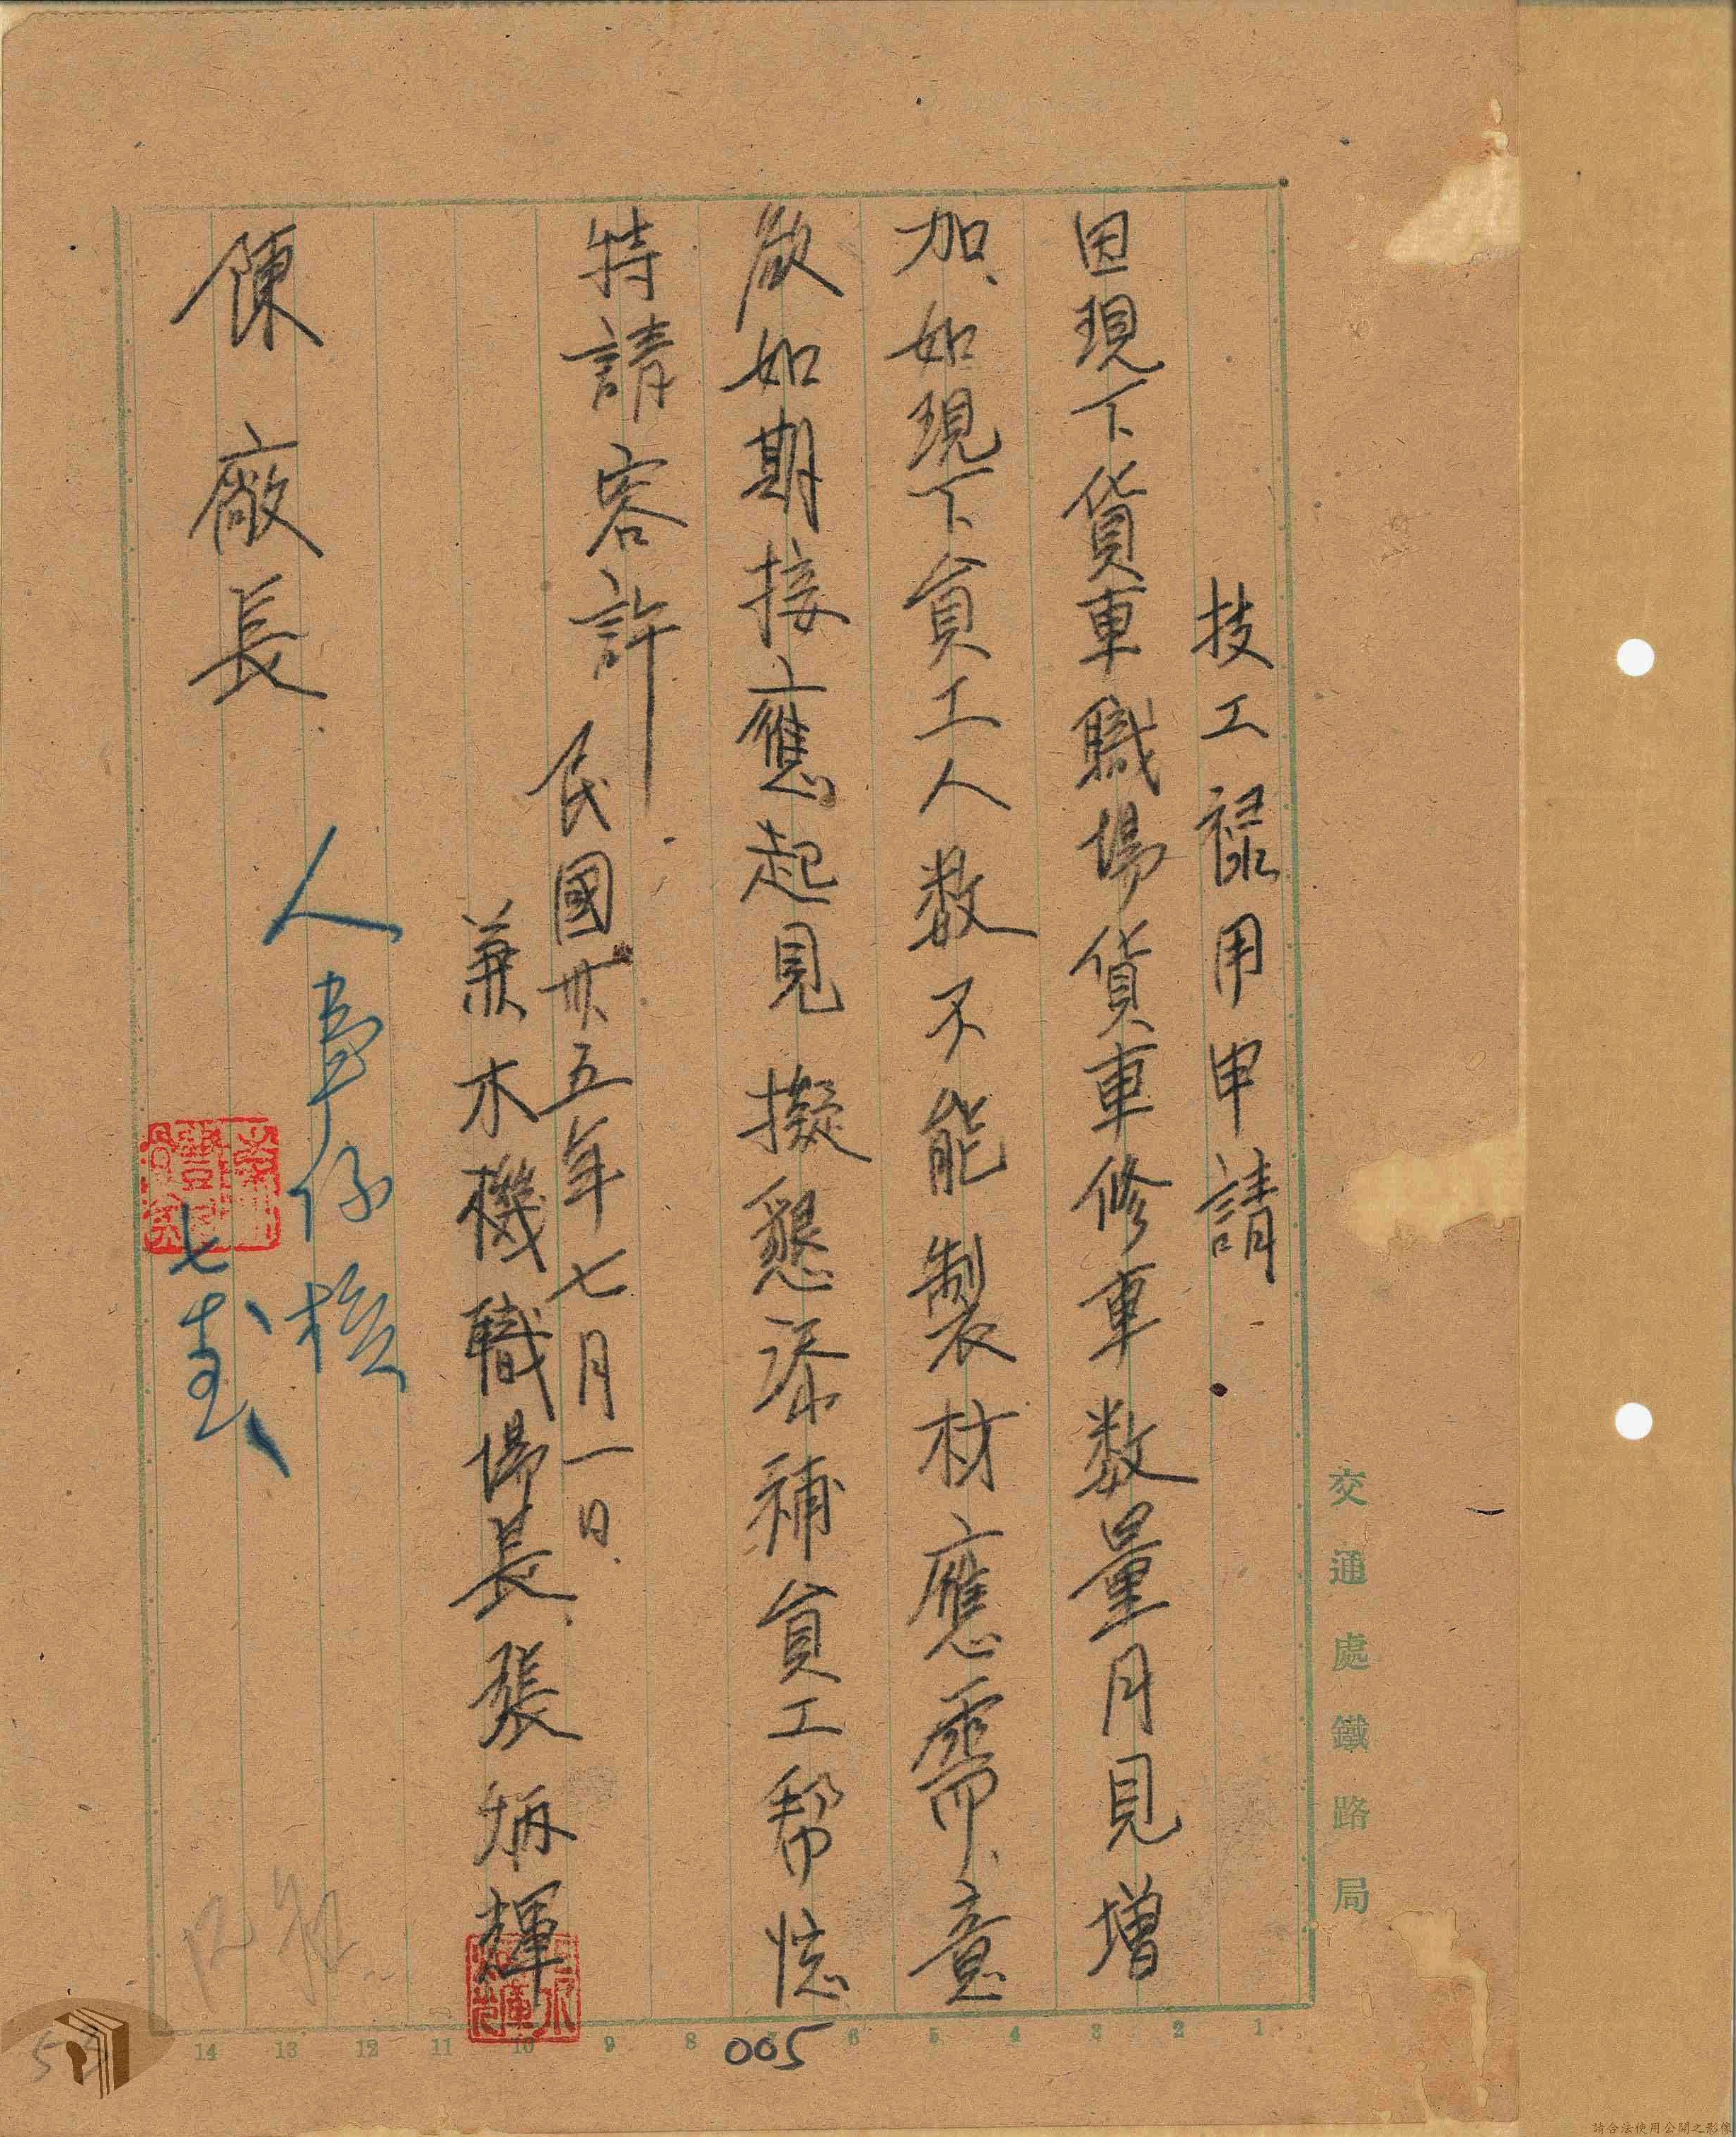 技工祿用申請
因現下貨車職場貨車修車数量月見增
加、如現下員工人数不能製材應需、意
欲如期接應起見擬懇添補員工幇忙
特請容許
民國卅五年七月一日
兼木機職場長 張炳輝
陳廠長
人事仔核
七
交通處鐵路局
1 2 3 4 5 6 8 9 10 11 12 13 14
005
請合法使用公開之影像